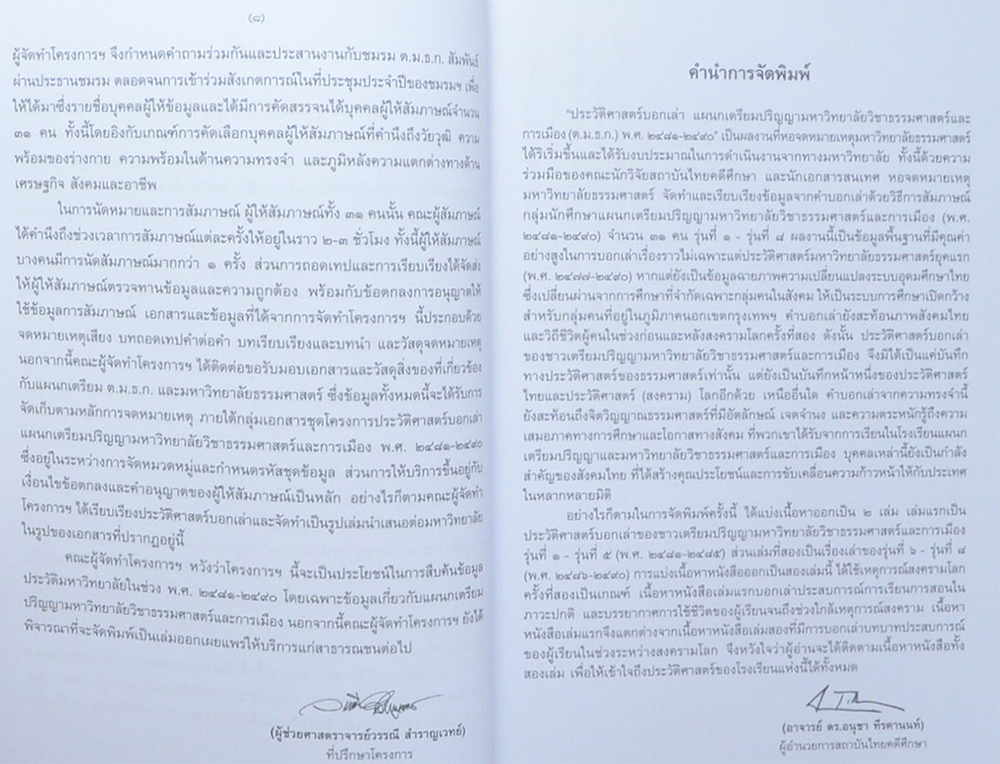 (๘)
ผู้จัดทำโครงการฯ จึงกำหนดคำถามร่วมกันและประสานงานกับชมรม ต.ม.ธ.ก. สัมพันธ์
ผ่านประธานชมรม ตลอดจนการเข้าร่วมสังเกตการณ์ในที่ประชุมประจำปีของชมรมฯ เพื่อ
ให้ได้มาซึ่งรายชื่อบุคคลผู้ให้ข้อมูลและได้มีการคัดสรรจนได้บุคคลผู้ให้สัมภาษณ์จำนวน
๓๑ คน ทั้งนี้โดยอิงกับเกณฑ์การคัดเลือกบุคคลผู้ให้สัมภาษณ์ที่คำนึงถึงวัยวุฒิ ความ
พร้อมของร่างกาย ความพร้อมในด้านความทรงจำ และภูมิหลังความแตกต่างทางด้าน
เศรษฐกิจ สังคมและอาชีพ
ในการนัดหมายและการสัมภาษณ์ ผู้ให้สัมภาษณ์ทั้ง ๓๑ คนนั้น คณะผู้สัมภาษณ์
ได้คำนึงถึงช่วงเวลาการสัมภาษณ์แต่ละครั้งให้อยู่ในราว ๒-๓ ชั่วโมง ทั้งนี้ผู้ให้สัมภาษณ์
บางคนมีการนัดสัมภาษณ์มากกว่า ๑ ครั้ง ส่วนการถอดเทปและการเรียบเรียงได้จัดส่ง
ให้ผู้ให้สัมภาษณ์ตรวจทานข้อมูลและความถูกต้อง พร้อมกับข้อตกลงการอนุญาตให้
ใช้ข้อมูลการสัมภาษณ์ เอกสารและข้อมูลที่ได้จากการจัดทำโครงการฯ นี้ประกอบด้วย
จดหมายเหตุเสียง บทถอดเทปคำต่อคำ บทเรียบเรียงและบทนำ และวัสดุจดหมายเหตุ
นอกจากนี้คณะผู้จัดทำโครงการฯ ได้ติดต่อขอรับมอบเอกสารและวัสดุสิ่งของที่เกี่ยวข้อง
กับแผนกเตรียม ต.ม.ธ.ก. และมหาวิทยาลัยธรรมศาสตร์ ซึ่งข้อมูลทั้งหมดนี้จะได้รับการ
จัดเก็บตามหลักการจดหมายเหตุ ภายใต้กลุ่มเอกสารชุดโครงการประวัติศาสตร์บอกเล่า
แผนกเตรียมปริญญามหาวิทยาลัยวิชาธรรมศาสตร์และการเมือง พ.ศ. ๒๔๘๑-๒๔๙๐
ซึ่งอยู่ในระหว่างการจัดหมวดหมู่และกำหนดรหัสชุดข้อมูล ส่วนการให้บริการขึ้นอยู่กับ
เงื่อนไขข้อตกลงและคำอนุญาตของผู้ให้สัมภาษณ์เป็นหลัก อย่างไรก็ตามคณะผู้จัดทำ
โครงการฯ ได้เรียบเรียงประวัติศาสตร์บอกเล่าและจัดทำเป็นรูปเล่มนำเสนอต่อมหาวิทยาลัย
ในรูปของเอกสารที่ปรากฏอยู่นี้
คณะผู้จัดทำโครงการฯ หวังว่าโครงการฯ นี้จะเป็นประโยชน์ในการสืบค้นข้อมูล
ประวัติมหาวิทยาลัยในช่วง พ.ศ. ๒๔๘๑-๒๔๙๐ โดยเฉพาะข้อมูลเกี่ยวกับแผนกเตรียม
ปริญญามหาวิทยาลัยวิชาธรรมศาสตร์และการเมือง นอกจากนี้คณะผู้จัดทำโครงการฯ ยังได้
พิจารณาที่จะจัดพิมพ์เป็นเล่มออกเผยแพร่ให้บริการแก่สาธารณชนต่อไป
(ผู้ช่วยศาสตราจารย์วรรณี สำราญเวทย์)
ที่ปรึกษาโครงการ
คำนำการจัดพิมพ์
"ประวัติศาสตร์บอกเล่า แผนกเตรียมปริญญามหาวิทยาลัยวิชาธรรมศาสตร์และ
การเมือง (ต.ม.ธ.ก.) พ.ศ. ๒๔๘๑-๒๔๙๐" เป็นผลงานที่หอจดหมายเหตุมหาวิทยาลัยธรรมศาสตร์
ได้ริเริ่มขึ้นและได้รับงบประมาณในการดำเนินงานจากทางมหาวิทยาลัย ทั้งนี้ด้วยความ
ร่วมมือของคณะนักวิจัยสถาบันไทยคดีศึกษา และนักเอกสารสนเทศ หอจดหมายเหตุ
มหาวิทยาลัยธรรมศาสตร์ จัดทำและเรียบเรียงข้อมูลจากคำบอกเล่าด้วยวิธีการสัมภาษณ์
กลุ่มนักศึกษาแผนกเตรียมปริญญามหาวิทยาลัยวิชาธรรมศาสตร์และการเมือง (พ.ศ.
๒๔๘๑-๒๔๙๐) จำนวน ๓๑ คน รุ่นที่ ๑ - รุ่นที่ ๘ ผลงานนี้เป็นข้อมูลพื้นฐานที่มีคุณค่า
อย่างสูงในการบอกเล่าเรื่องราวไม่เฉพาะแต่ประวัติศาสตร์มหาวิทยาลัยธรรมศาสตร์ยุคแรก
(พ.ศ. ๒๔๗๗-๒๔๙๐) หากแต่ยังเป็นข้อมูลฉายภาพความเปลี่ยนแปลงระบบอุดมศึกษาไทย
ซึ่งเปลี่ยนผ่านจากการศึกษาที่จำกัดเฉพาะกลุ่มคนในสังคม ให้เป็นระบบการศึกษาเปิดกว้าง
สำหรับกลุ่มคนที่อยู่ในภูมิภาคนอกเขตกรุงเทพฯ คำบอกเล่ายังสะท้อนภาพสังคมไทย
และวิถีชีวิตผู้คนในช่วงก่อนและหลังสงครามโลกครั้งที่สอง ดังนั้น ประวัติศาสตร์บอกเล่า
ของชาวเตรียมปริญญามหาวิทยาลัยวิชาธรรมศาสตร์และการเมือง จึงมิได้เป็นแค่บันทึก
ทางประวัติศาสตร์ของธรรมศาสตร์เท่านั้น แต่ยังเป็นบันทึกหน้าหนึ่งของประวัติศาสตร์
ไทยและประวัติศาสตร์ (สงคราม) โลกอีกด้วย เหนืออื่นใด คำบอกเล่าจากความทรงจำนี้
ยังสะท้อนถึงจิตวิญญาณธรรมศาสตร์ที่มีอัตลักษณ์ เจตจำนง และความตระหนักรู้ถึงความ
เสมอภาคทางการศึกษาและโอกาสทางสังคม ที่พวกเขาได้รับจากการเรียนในโรงเรียนแผนก
เตรียมปริญญาและมหาวิทยาลัยวิชาธรรมศาสตร์และการเมือง บุคคลเหล่านี้ยังเป็นกำลัง
สำคัญของสังคมไทย ที่ได้สร้างคุณประโยชน์และการขับเคลื่อนความก้าวหน้าให้กับประเทศ
ในหลากหลายมิติ
อย่างไรก็ตามในการจัดพิมพ์ครั้งนี้ ได้แบ่งเนื้อหาออกเป็น ๒ เล่ม เล่มแรกเป็น
ประวัติศาสตร์บอกเล่าของชาวเตรียมปริญญามหาวิทยาลัยวิชาธรรมศาสตร์และการเมือง
รุ่นที่ ๑ - รุ่นที่ ๕ (พ.ศ. ๒๔๘๑-๒๔๘๕) ส่วนเล่มที่สองเป็นเรื่องเล่าของรุ่นที่ ๖ - รุ่นที่ ๘
(พ.ศ. ๒๔๘๖-๒๔๙๐) การแบ่งเนื้อหาหนังสือออกเป็นสองเล่มนี้ ได้ใช้เหตุการณ์สงครามโลก
ครั้งที่สองเป็นเกณฑ์ เนื้อหาหนังสือเล่มแรกบอกเล่าประสบการณ์การเรียนการสอนใน
ภาวะปกติ และบรรยากาศการใช้ชีวิตของผู้เรียนจนถึงช่วงใกล้เหตุการณ์สงคราม เนื้อหา
หนังสือเล่มแรกจึงแตกต่างจากเนื้อหาหนังสือเล่มสองที่มีการบอกเล่าบทบาทประสบการณ์
ของผู้เรียนในช่วงระหว่างสงครามโลก จึงหวังใจว่าผู้อ่านจะได้ติดตามเนื้อหาหนังสือทั้ง
สองเล่ม เพื่อให้เข้าใจถึงประวัติศาสตร์ของโรงเรียนแห่งนี้ได้ทั้งหมด
(อาจารย์ ดร.อนุชา ทีรคานนท์)
ผู้อำนวยการสถาบันไทยคดีศึกษา